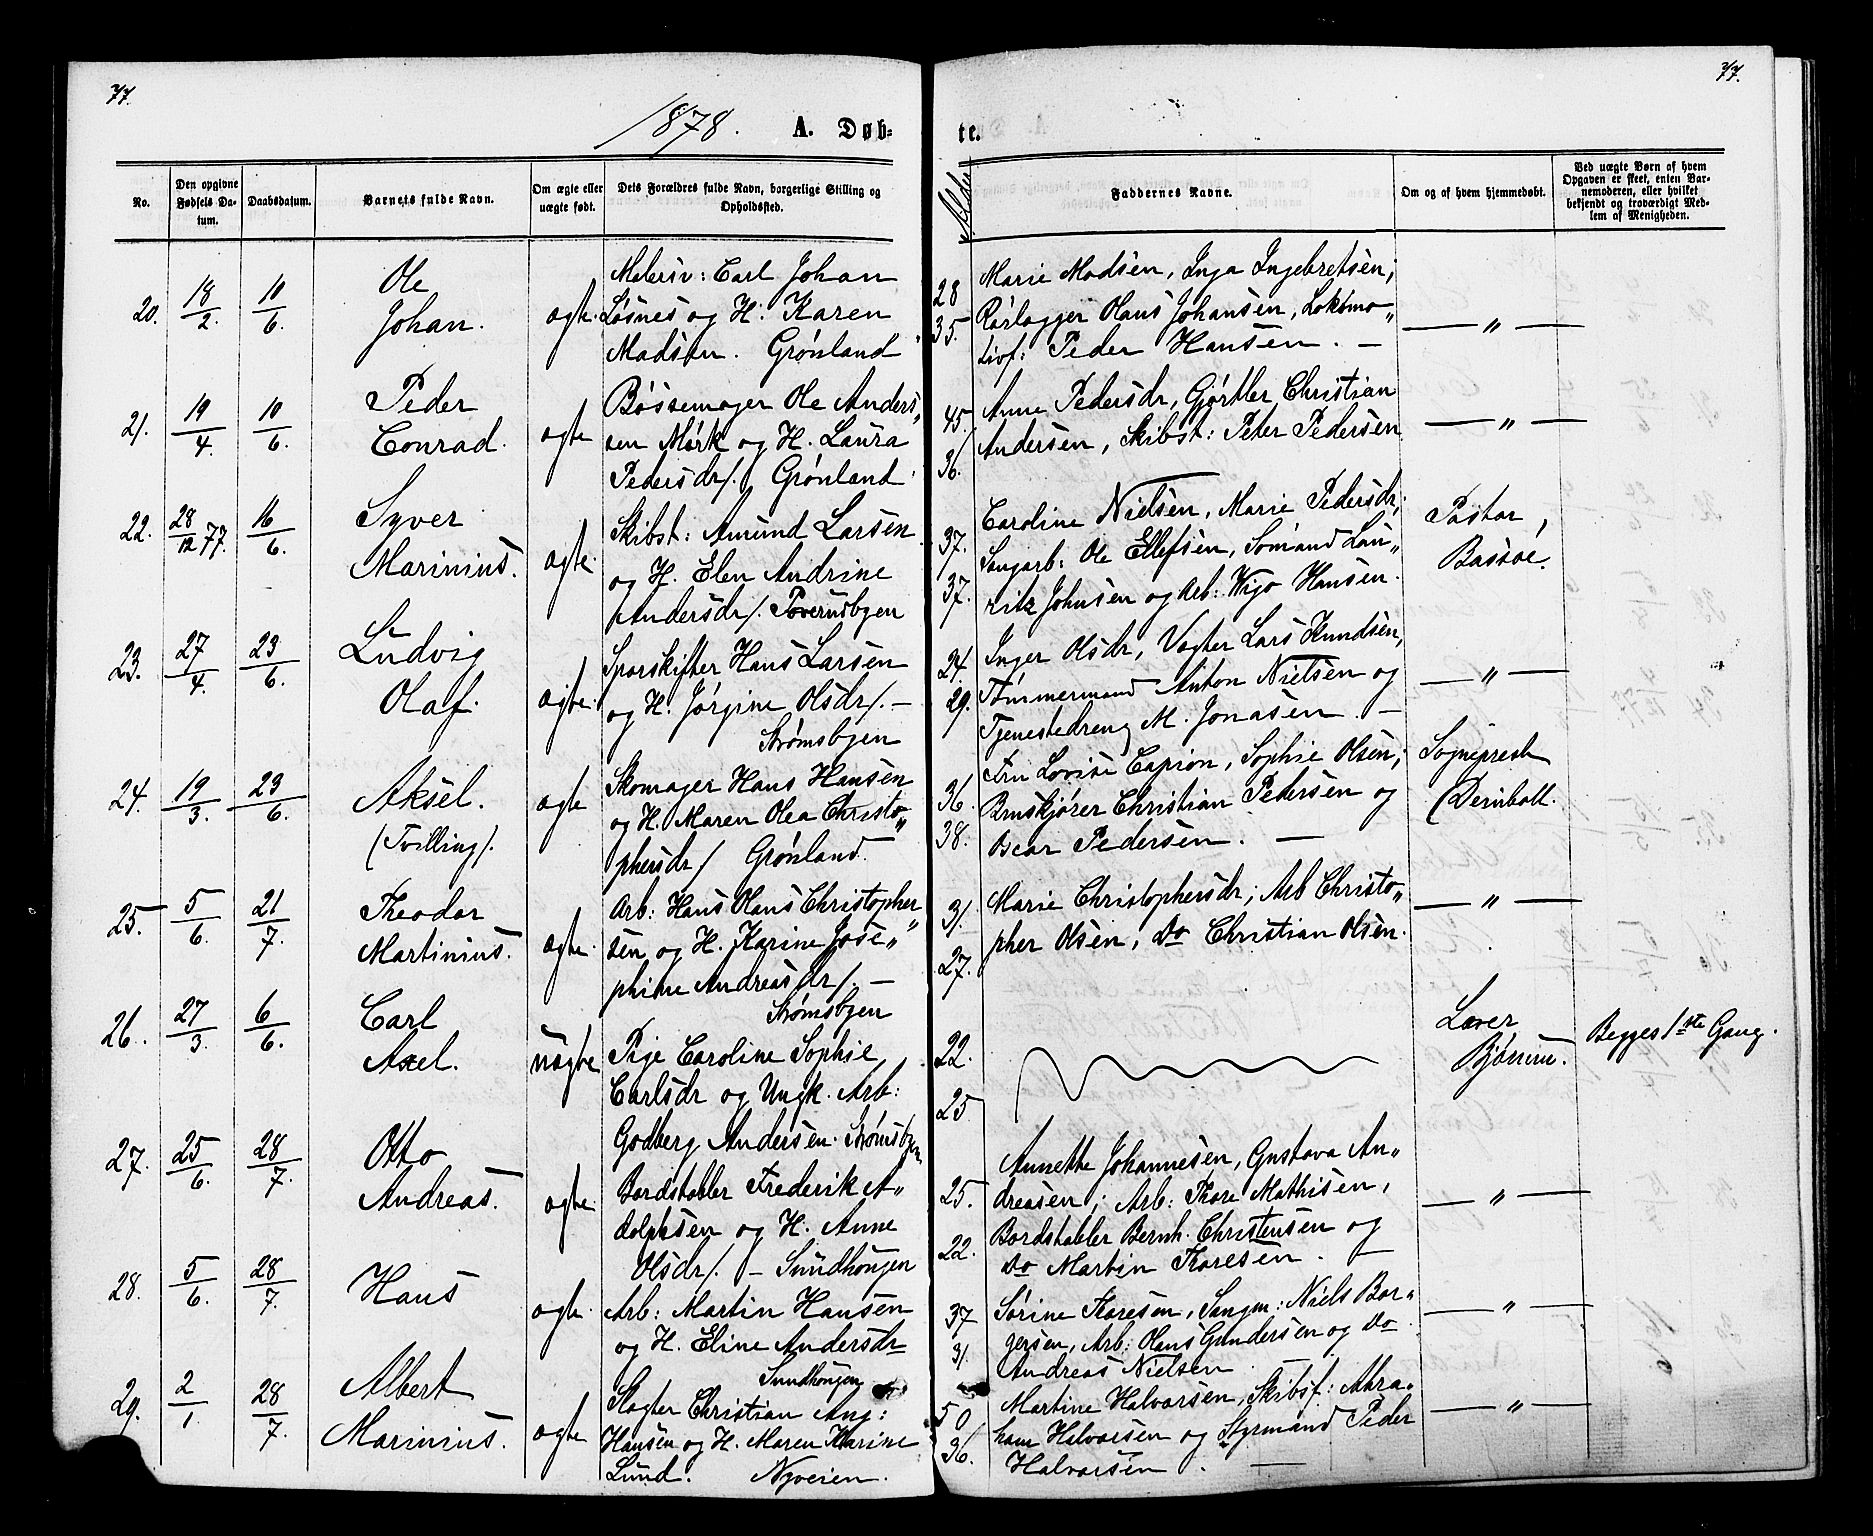 77.
77.
1878. A. Døb-
te.
No.
Den opgivne Fødsels Datum.
Daabsdatum.
Barnets fulde Navn.
Om ægte eller uægte født.
Dets Forældres fulde Navn, borgerlige Stilling og Opholdssted.
Alder
Faddernes Navne.
Om og af hvem hjemmedøbt.
Ved uægte Børn af hvem Opgaven er skeet, enten Barnemoderen, eller hvilket bekjendt og troværdigt Medlem af Menigheden.
20. 18/2. 10/6. Ole
Johan. ægte.
Malersv: Carl Johan
Løsnes og H. Karen
Madsen. Grønland
28
35.
Marie Madsen, Inga Ingebretsen,
Rørlægger Hans Johansen, Lokomo„
tivf: Peder Hansen. —
— „ —
21. 19/4. 10/6. Peder
Conrad. ægte
Bøssemager Ole Anders„
sen Mørk og H. Laura
Pedersdr/. Grønland
45.
36.
Anne Pedersdr, Gjørtler Christian
Andersen, Skibst: Peter Pedersen
— „ —
22. 28/12 77. 16/6. Syver
Marinius. ægte.
Skibst: Amund Larsen
og H. Elen Andrine
Andersdr/.
37.
37.
Caroline Nielsen, Marie Pedersdr,
Saugarb: Ole Ellefsen, Sømand Lau„
ritz Johnsen og Arb: Wigo Hansen.
Pastor
Bassøe.
23. 27/4. 23/6. Ludvig
Olaf. ægte.
Sporskifter Hans Larsen
og H. Jørgine Olsdr/. —
Strømsbyen
24.
29.
Inger Olsdr, Vagter Lars Knudsen,
Tømmermand Anton Nielsen og
Tjenestedreng M. Jonasen. —
— „ —
24. 19/3. 23/6. Aksel.
(Tvilling). ægte
Skomager Hans Hansen
og H. Maren Olea Christo„
phersdr/ Grønland.
36.
38.
Fru Lovise Capion, Sophie Olsen,
Bruskjører Christian Pedersen og
Oscar Pedersen. —
Sognepresten
25. 5/6. 21/7. Theodor
Martinius. ægte.
Arb: Hans Olaus Christopher„
sen og H. Karine Jose„
phine Andreasdr/. —
Strømsbyen
31.
27.
Marie Christophersdr, Arb Christo„
pher Olsen, Do Christian Olsen.
— „ —
26. 27/3. 6/6. Carl
Axel. uægte
Pige Caroline Sophie
Carlsdr og Ungk. Arb:
Godberg Andersen. Strømsbyen
22.
25
Lærer
Begges 1ste Gang.
27. 25/6. 28/7. Otto
Andreas. ægte.
Bordstabler Frederik A„
dolphsen og H. Anne
Olsdr/. — Sundhougen
25.
22.
Annette Johannesen, Gustava An„
dreasen, Arb: Thore Mathisen,
Bordstabler Bernh. Christensen og
Do Martin Thoresen. —
— „ —
28. 5/6. 28/7. Hans ægte.
Arb: Martin Hansen
og H. Eline Andersdr
Sundhougen
37
31.
Sørine Thoresen, Saugm: Niels Bor„
gersen, Arb: Hans Gundersen og Do
Andreas Nielsen.
— „ —
29. 2/1. 28/7. Albert
Marinius. ægte
Slagter Christian Aug:
Hansen og H. Maren Karine
Lund. Nyveien.
50
36.
Martine Halvorsen, Skibsf: Abra„
ham Halvorsen og Styrmand Peder
Halvorsen. —
— „ —